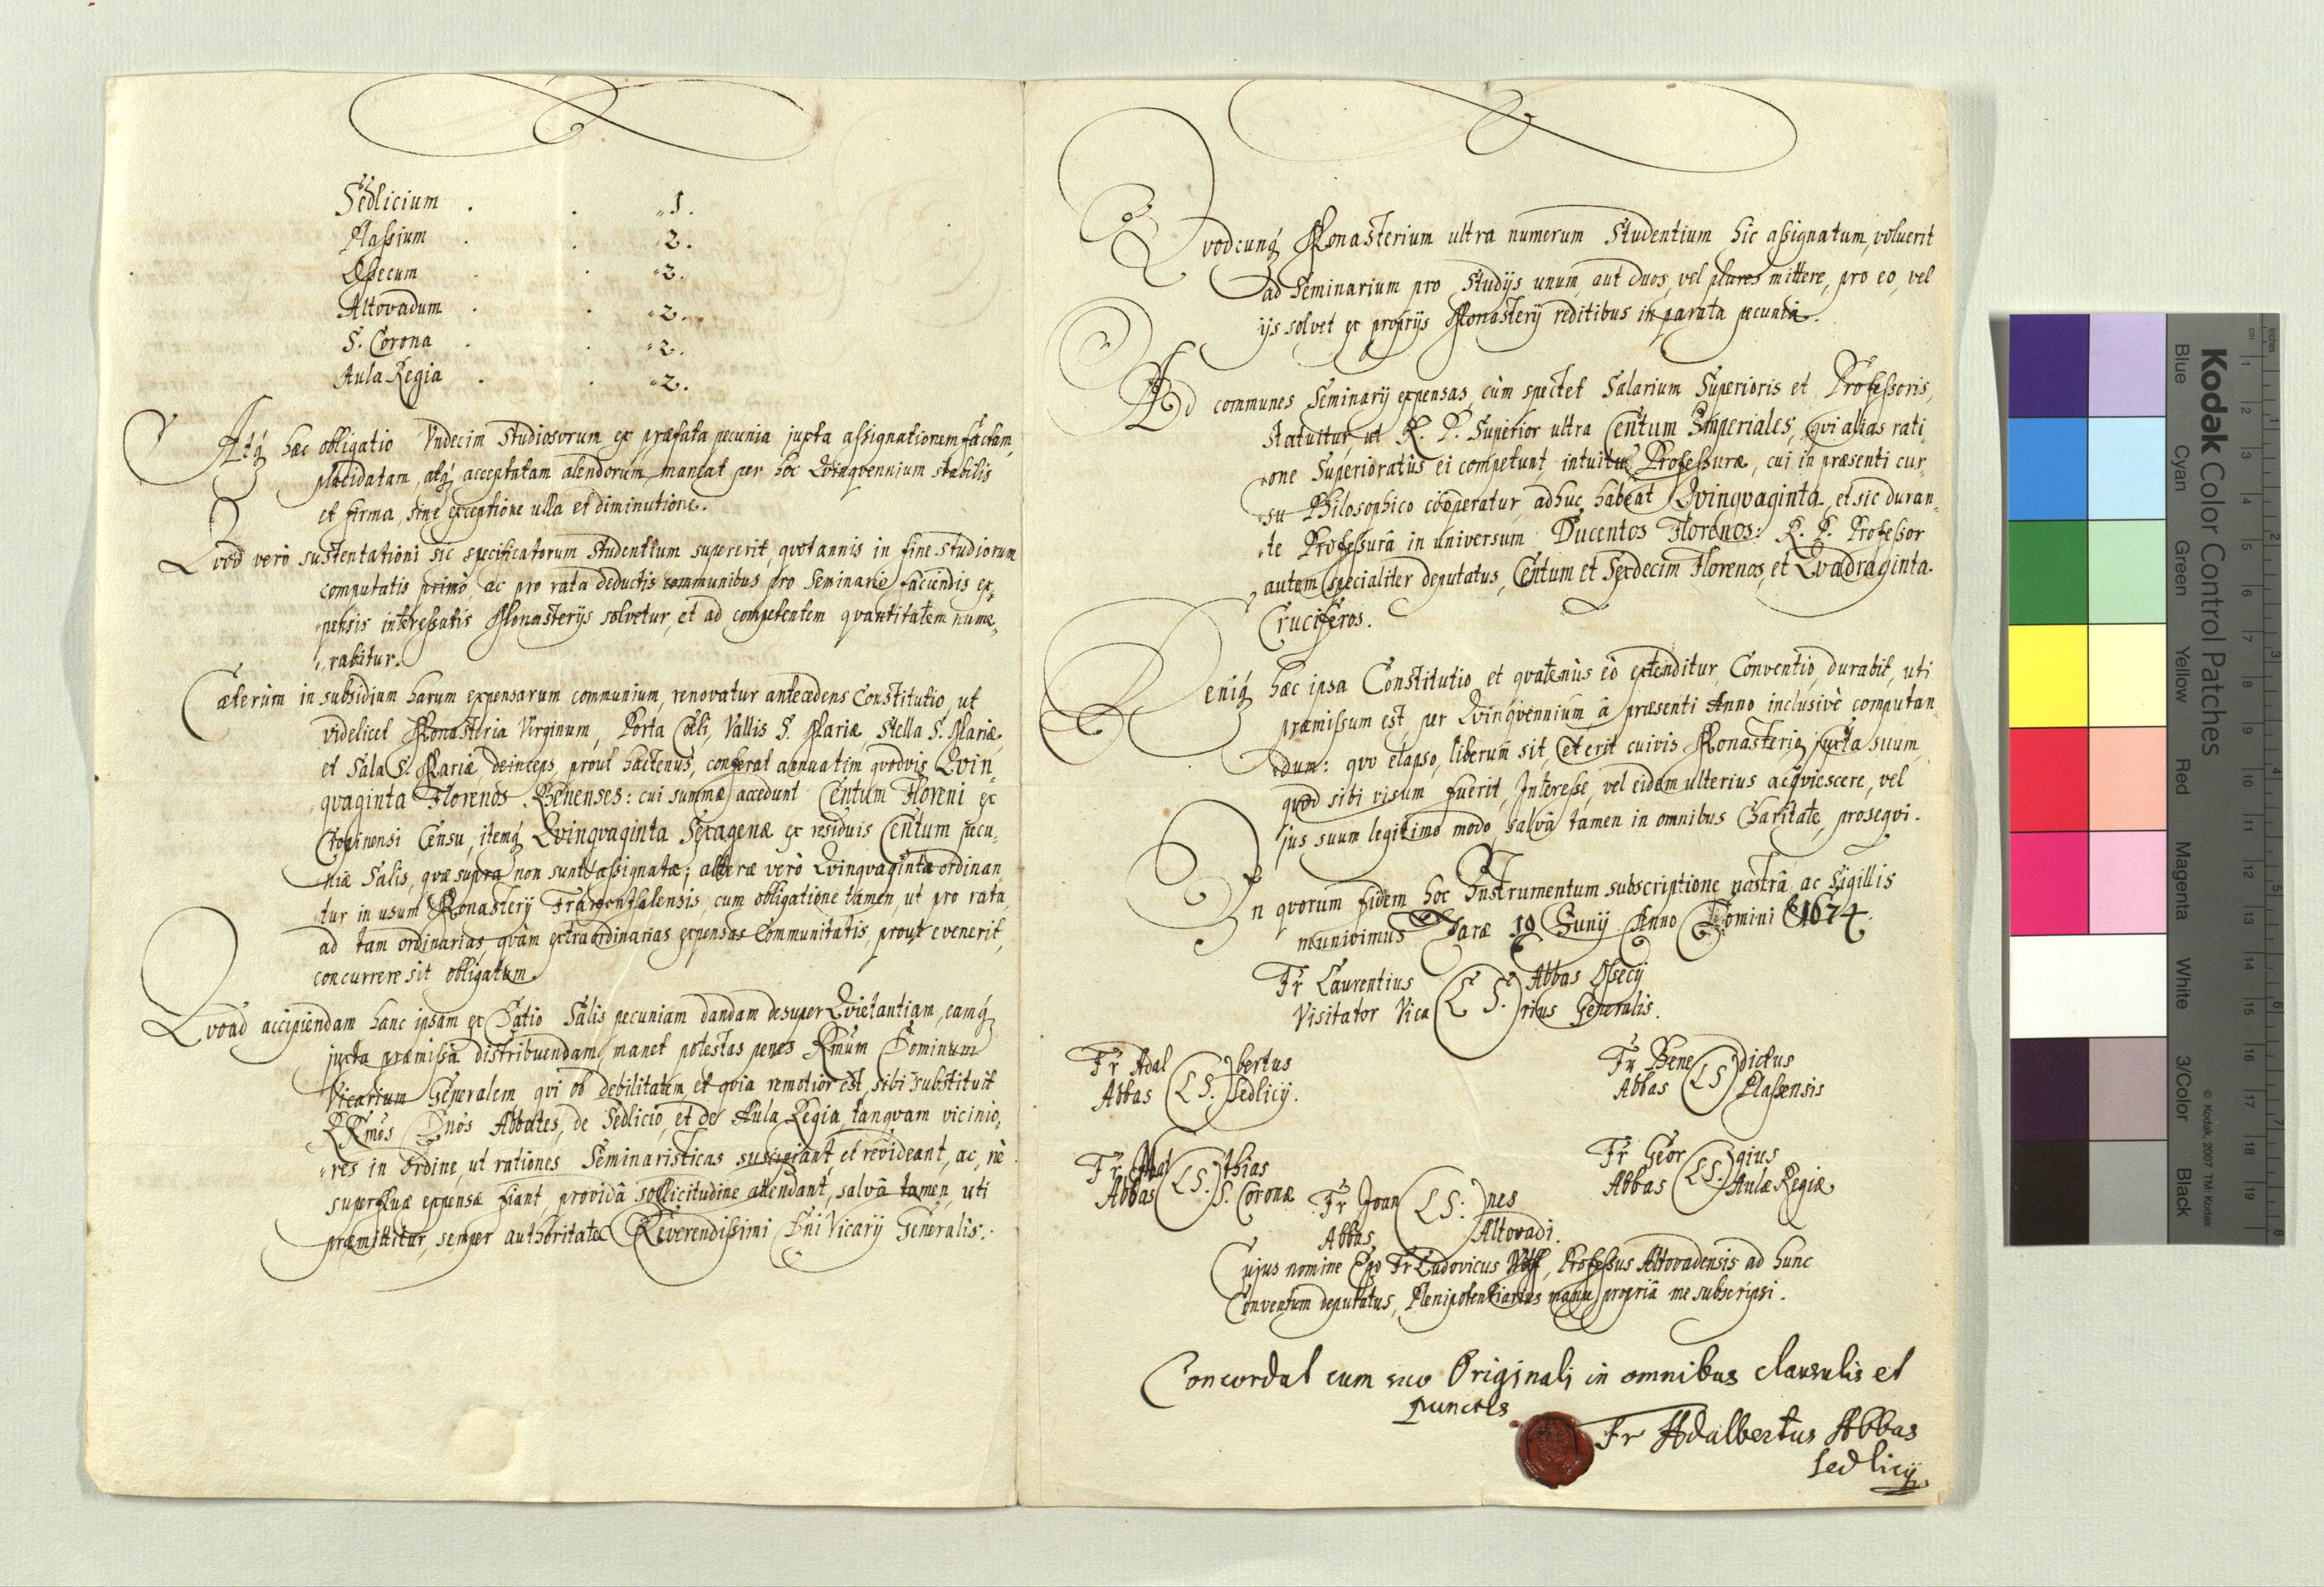 Sedlicium . . „1.
Plassium . . „2.
Ossecum . . „2.
Altovadum . . „2.
S. Corona . . „2.
Aula Regia . . „2.
Atq́ hæc obligatio Vndecim Studiosorum ex præfata pecunia juxta assignationem factam,
placidatam, atq́ acceptatam alendorum, maneat per hoc Qvinqvennium stabilis
et firma, sine exceptione ulla et diminutione.
Qvod verò sustentationi sic specificatorum Studentium supererit, qvotannis in fine Studiorum
computatis primò, ac pro rata deductis communibus, pro Seminario faciendis ex„
„pensis interessatis Monasterijs solvetur, et ad competentem qvantitatem nume„
„rabitur.
Cæterùm in subsidium harum expensarum communium, renovatur antecedens Constitutio, ut
videlicet Monasteria Virginum, Porta Cœli, Vallis S. Mariæ, Stella S. Mariæ,
et Sala S. Mariæ, deinceps, prout hactenus, conferat annuatim qvodvis Qvin„
qvaginta Florenos Rhenenses: cui summæ accedunt Centum Floreni ex
Censu, itemq́ Qvinqvaginta Sexagenæ ex residuis Centum pecu„
niæ Salis, qvæ supra non sunt assignatæ; alteræ verò Qvinqvaginta ordinan„
tur in usum Monasterij cum obligatione tamen, ut pro rata,
ad tam ordinarias, qvàm extraordinarias expensas Communitatis, prout evenerit,
concurrere sit obligatum.
Qvoad accipiendam hanc ipsam ex Datio Salis pecuniam dandam desuper Qvietantiam, eamq́
juxta præmissa distribuendam, manet potestas penes Rmum Dominum
Vicarium Generalem qvi ob debilitatem, et qvia remotior est, sibi substituit
RRmos Dnos Abbates, de Sedlicio, et de Aula Regia, tanqvam vicinio„
„res in ordine, ut rationes Seminaristicas suscipiant, et revideant, ac, nè
superfluæ expensæ fiant, providâ sollicitudine attendant, salvâ tamen, uti
præmittitur, semper authoritate Reverendissimi Dni Vicarij Generalis.
Qvodcunq́ Monasterium ultra numerum Studentium hic assignatum, voluerit
ad Seminarium pro Studijs unum, aut duos, vel plures mittere, pro eo, vel
ijs solvet ex proprijs Monasterij reditibus in parata pecunia.
Ad communes Seminarij expensas, cùm spectet Salarium Superioris et Professoris,
Statuitur, ut R. P. Superior ultra Centum Imperiales, qvi alias rati„
„one Superioratûs ei competunt, intuitu Professuræ, cui in præsenti cur„
„su Philosophico cooperatur, adhuc habeat Qvinqvaginta, et sic duran„
„te Professurâ in universum Ducentos Florenos: R. P. Professor
autem specialiter deputatus, Centum et Sexdecim Florenos, et Qvadraginta
Cruciferos.
Deniq́ hæc ipsa Constitutio, et qvatenùs eò extenditur, Conventio, durabit, uti
præmissum est, per Qvinqvennium, â præsenti Anno inclusivè computan„
„dum: qvo elapso, liberum sit, et erit cuivis Monasterio, juxta suum,
qvod sibi visum fuerit, Interesse, vel eidem ulterius acqviescere, vel
jus suum legitimo modo, salvâ tamen in omnibus Charitate, proseqvi.
In qvorum fidem hoc Instrumentum subscriptione nostrâ, ac Sigillis
munivimus 19 Junij Anno Domini 1674.
Fr Laurentius L S. Abbas Ossecij
Visitator Vica rius Generalis.
Fr Adal L S. bertus
Abbas Sedlicij.
Fr Bene L S dictus
Abbas Plassensis
Fr Mat L S. thias
Abbas S. Coronæ
Fr Geor L S. gius
Abbas Aulæ Regiæ
Fr Joan L S. nes
Abbas Altovadi.
Cujus nomine Ego Fr Ludovicus Professus Altovadensis ad hunc
Conventum deputatus, Plenipotentiarius manu propriâ me subscripsi.
Concordat cum suo Originali in omnibus clausulis et
punctis
Fr Adalbertus Abbas
Sedlicij
Kodak Color Control Patches
Blue Cyan Green Yellow Red Magenta White 3/Color Black
© Kodak, 2007 TM: Kodak
cm 1 2 3 4 5 6 7 8 9 10 11 12 13 14 15 16 17 18 19
inches 1 2 3 4 5 6 7 8